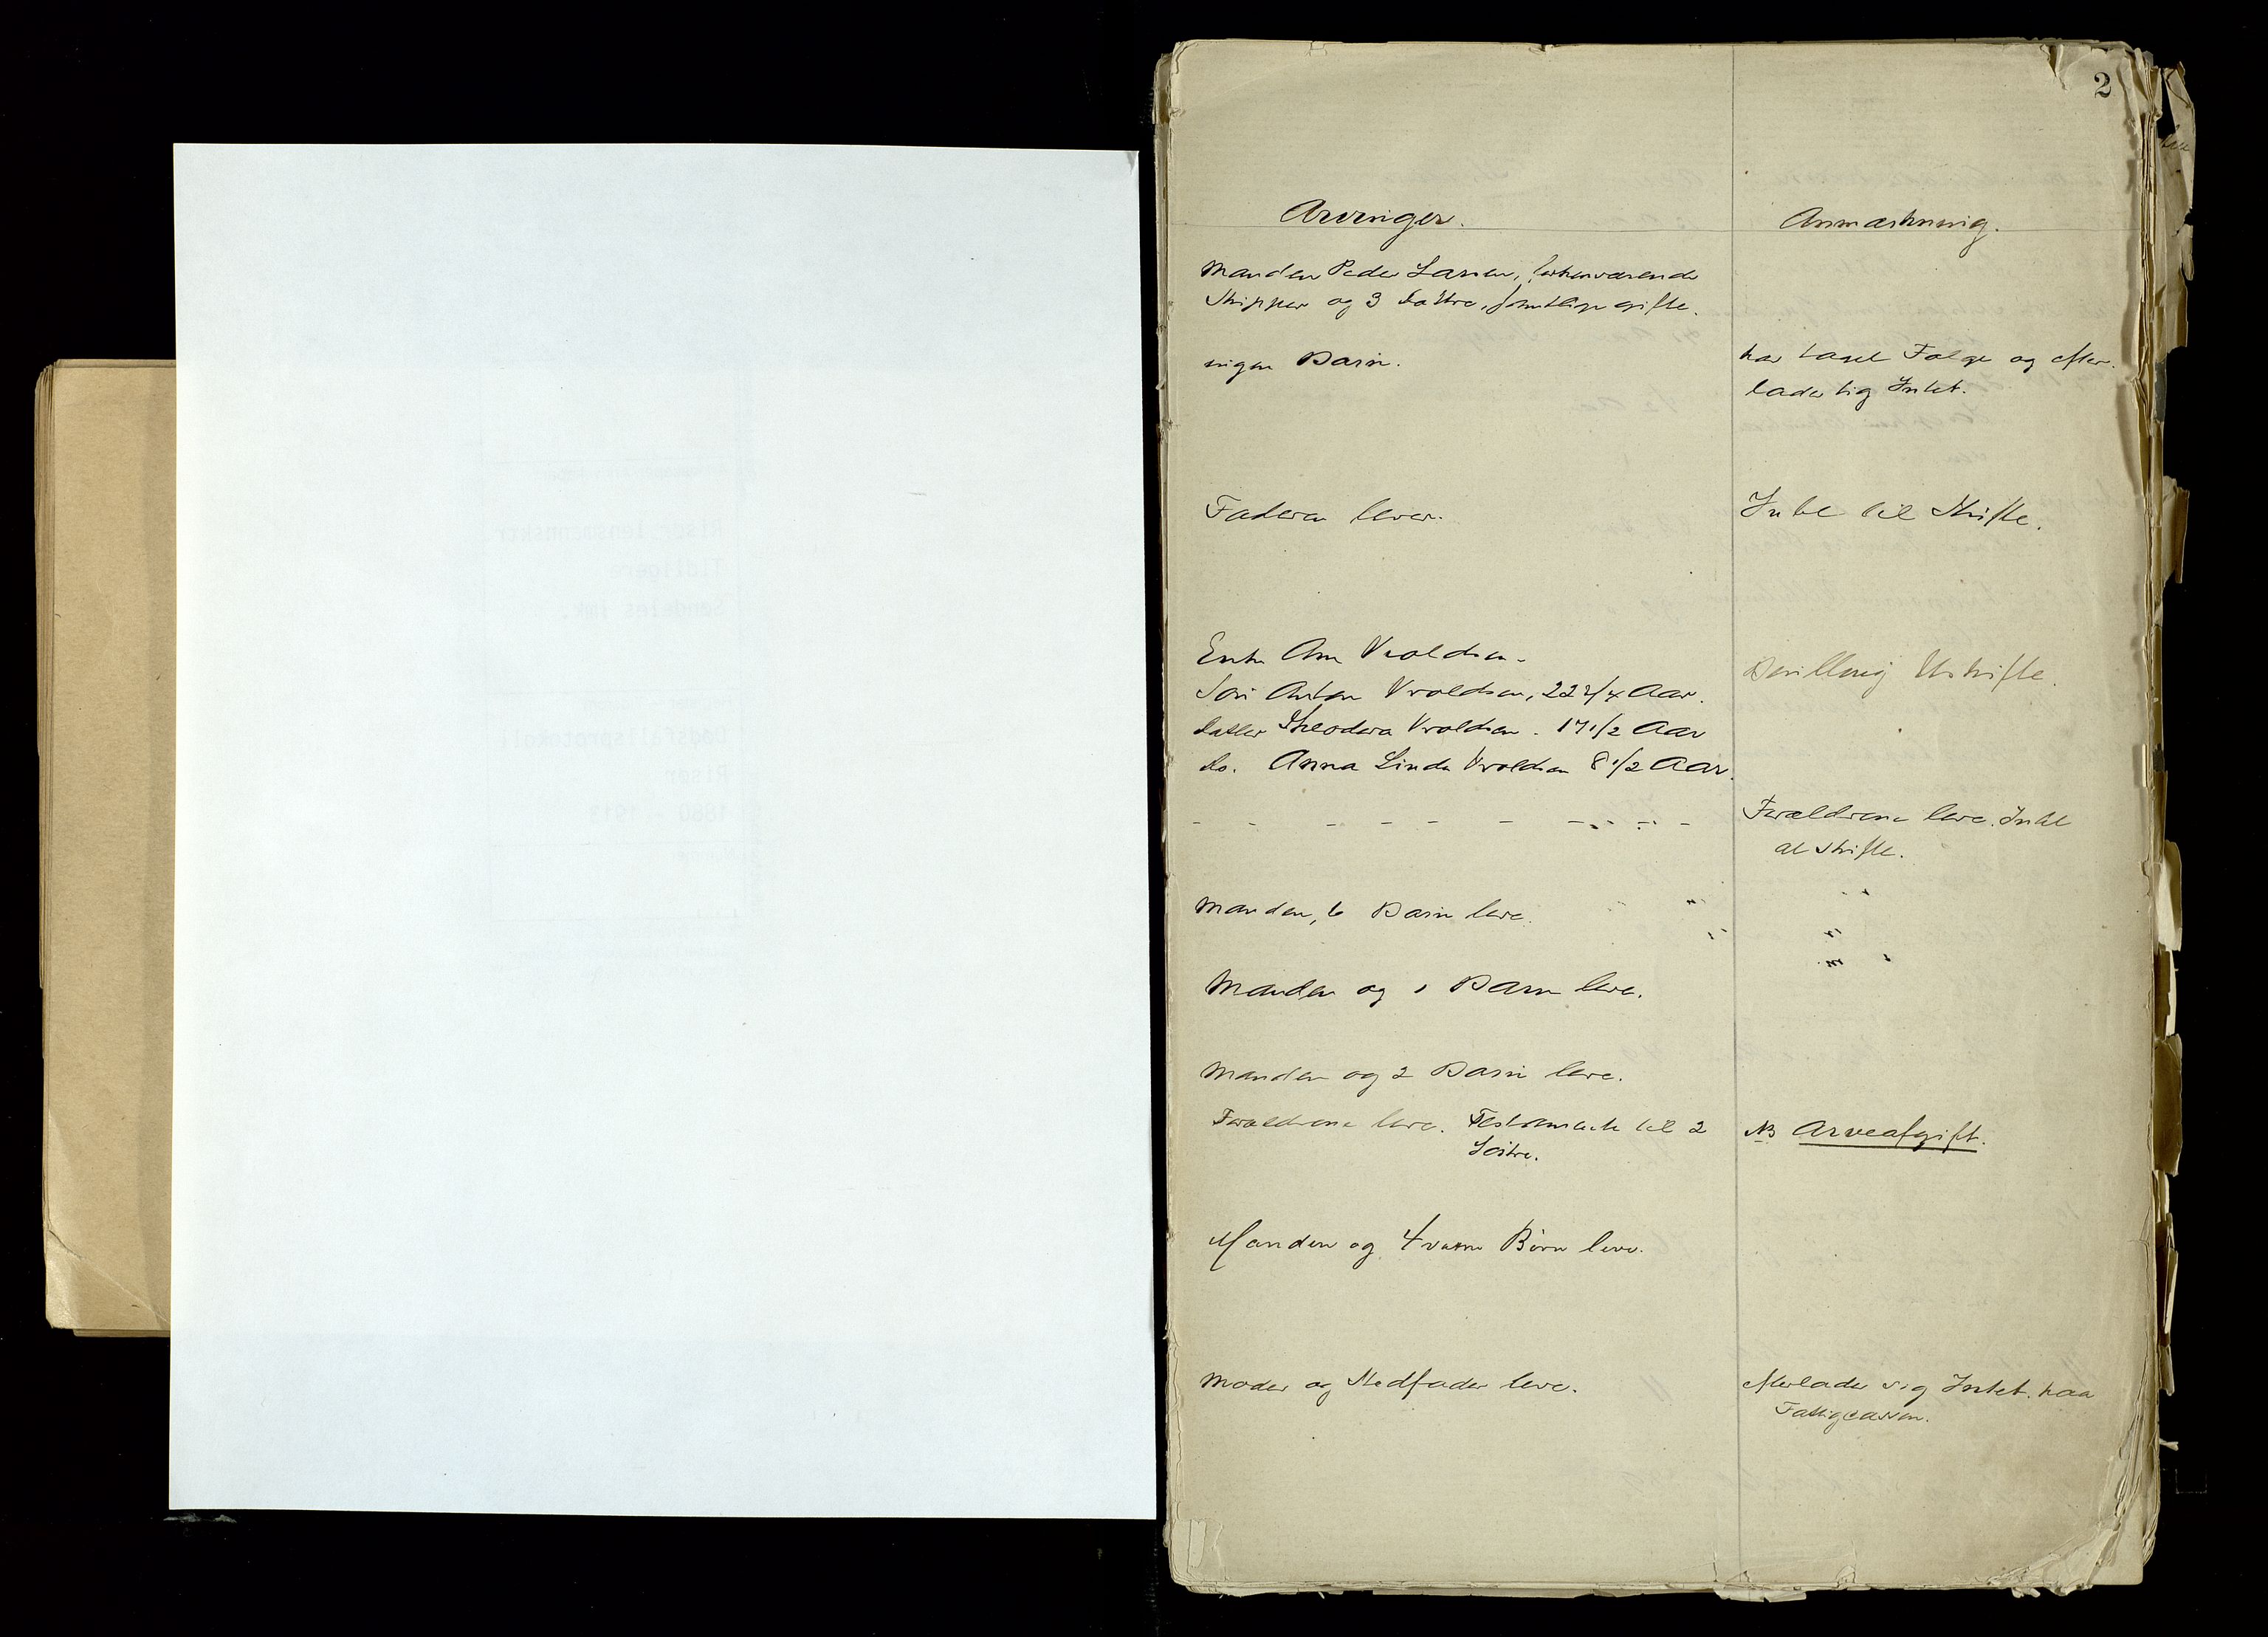 2
Arvinger.
Anmærkning.
Manden Peder Larsen, forhenværende
Skipper og 3 Døttre, samtlige gifte.
ingen Barn.
har taget Følge og efter-
lader sig Intet.
Faderen lever.
Intet til Skifte.
Enke Ane Vroldsen.
Søn Anton Vroldsen, 22 3/4 Aar.
Datter Theodora Vroldsen. 17 1/2 Aar
do. Anna Linda Vroldsen 8 1/2 Aar.
Bevilling Uskifte.
Forældrene leve. Intet
at skifte.
Manden, 6 Barn leve.
Manden og 1 Barn leve.
Manden og 2 Barn leve.
Forældrene leve. Testamente til 2
Søstre.
NB Arveafgift.
Manden og 4 voxne Børn leve.
Moder og Stedfader leve.
efterlader sig Intet. paa
Fattigcassen.
Riser lensmannsktr.
Tidligere
Søndeles lmk.
Dødsfallsprotokoll
Riser
1880 - 1913